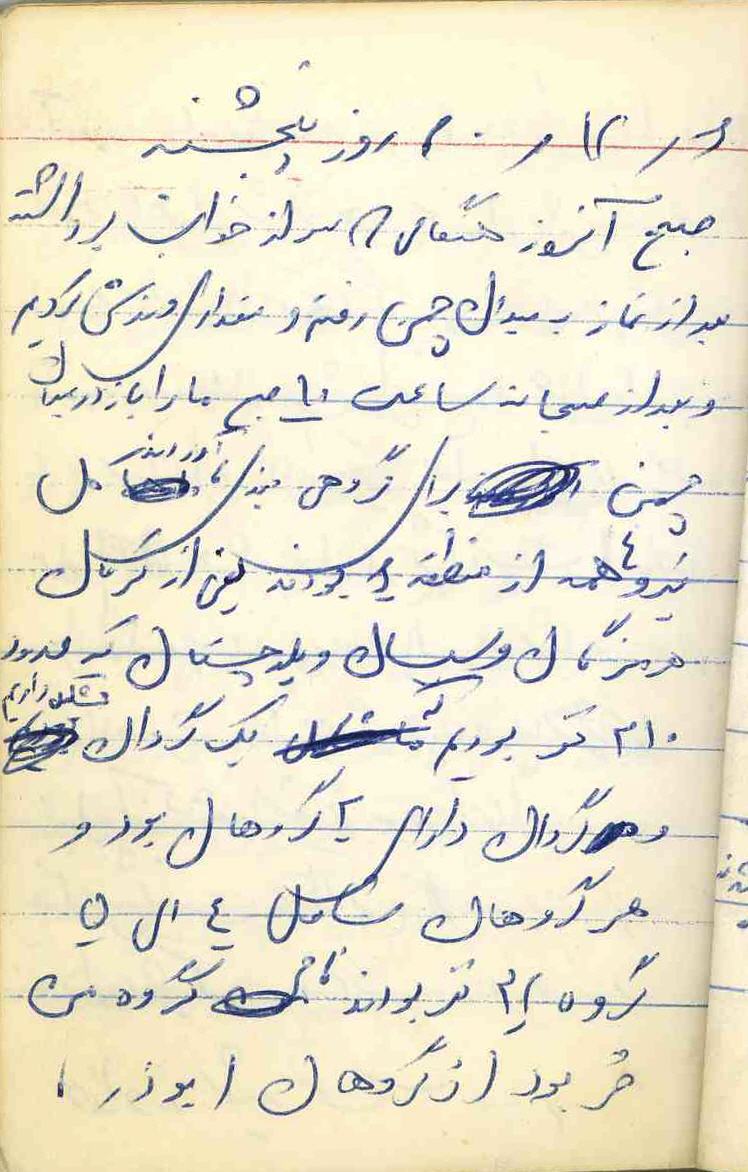 ۶ر ۱۲ر ۶۰ روز پنجشنبه
صبح آنروز هنگام سر از خواب برداشته
بعد از نماز به میدان چمن رفته و مقداری ورزش کردیم
و بعد از صبحانه ساعت ۱۰ صبح ما را باز در میدان
چمن برای گروهی بندی آوردند کل
نیروهمه از منطقه بودند یعنی از کرمان
هرمزگان و سیستان و بلوچستان که حدود
۲۱۰ نفر بودیم که یک گردان تشکیل دادیم
و گردان دارای ۲ گروهان بود و
هر گروهان شامل ٤ الی ۵
گروه ۲۲ نفر بودند نام گروه من
حر بود از گروهان ابوذر